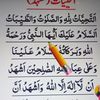 التحيات لله والصلوات والطيبات
السلام عليك أيها النبي ورحمة
الله وبركاته السلام علينا
وعلى عباد الله الصالحين أشهد
أن لا إله إلا الله وأشهد أن